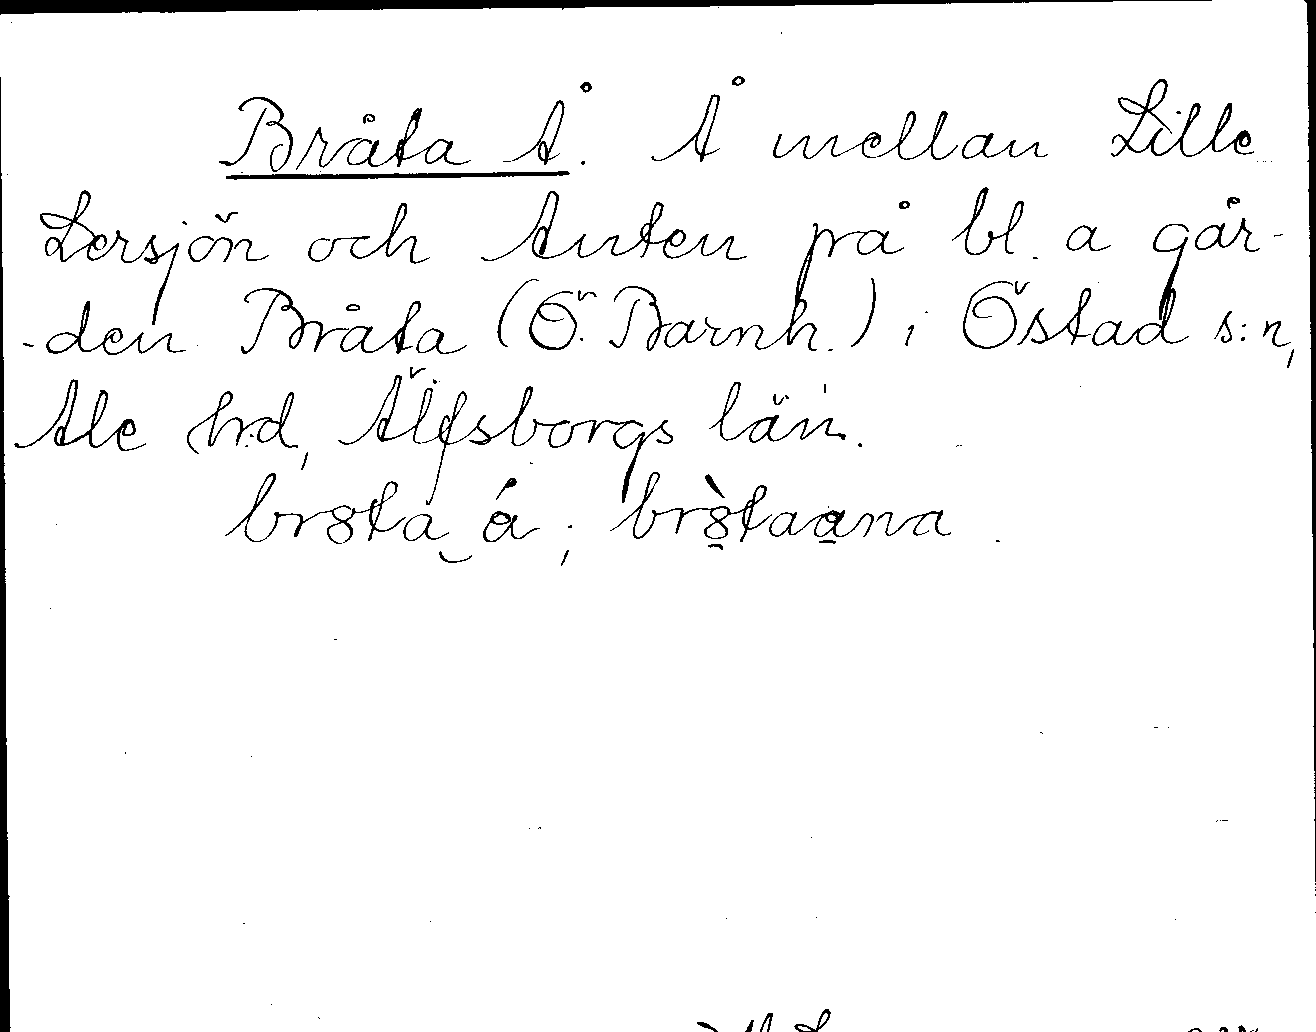 Bråta Å. Å mellan Lille
Lersjön och Anten på bl. a går-
-den Bråta (Ö. Barnh.) i Östad s:n,
Ale hd, Älfsborgs län.
br8ta á; br8̀taana